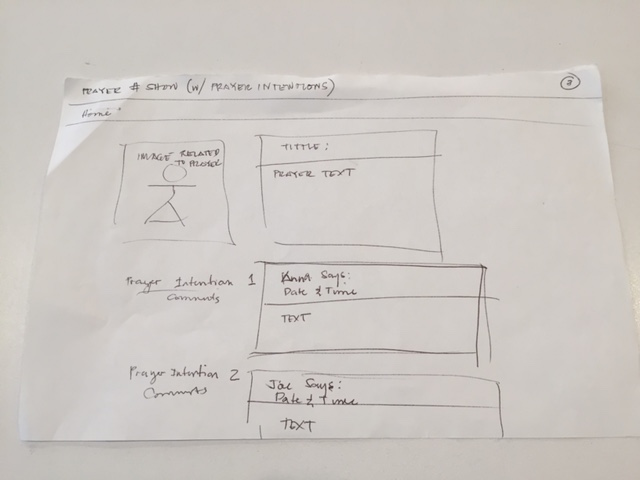 PRAYER # SHOW (W/ PRAYER INTENTIONS)
Home
IMAGE RELATED
TO PRAYER
TITTLE:
PRAYER TEXT
Prayer Intention 1
Comments
Anna Says:
Date & Time
TEXT
Prayer Intention 2
Comments
Joe Says:
Date & Time
TEXT